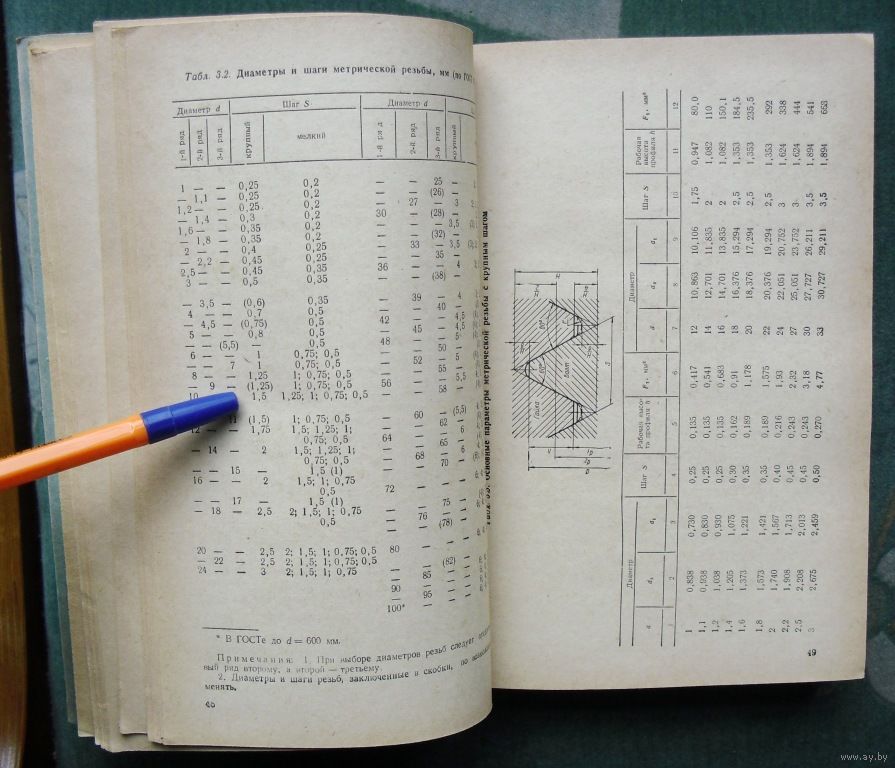 Табл. 3.2. Диаметры и шаги метрической резьбы, мм (по ГОСТ
Диаметр d Шаг S Диаметр d
1-й ряд 2-й ряд 3-й ряд крупный мелкий 1-й ряд 2-й ряд 3-й ряд крупный
1 — — 0,25 0,2 — — 25 —
— 1,1 — 0,25 0,2 — — (26) —
1,2 — — 0,25 0,2 — 27 — 3
— 1,4 — 0,3 0,2 30 — (28) —
1,6 — — 0,35 0,2 — — 3,5
— 1,8 — 0,35 0,2 — — (32) —
2 — — 0,4 0,25 — 33 — 3,5
— 2,2 — 0,45 0,25 — — 35 —
2,5 — — 0,45 0,35 36 — — 4
3 — — 0,5 0,35 — — (38) —
— 3,5 — (0,6) 0,35 — 39 — 4
4 — — 0,7 0,5 — — 40 —
— 4,5 — (0,75) 0,5 42 — — 4,5
5 — — 0,8 0,5 — 45 — 4,5
— — (5,5) — 0,5 48 — — 5
6 — — 1 0,75; 0,5 — — 50 —
— — 7 1 0,75; 0,5 — 52 — 5
8 — — 1,25 1; 0,75; 0,5 — — 55 —
— — 9 (1,25) 1; 0,75; 0,5 56 — — 5,5
10 1,5 1,25; 1; 0,75; 0,5 — — 58 —
11 (1,5) 1; 0,75; 0,5 — 60 — (5,5)
12 — — 1,75 1,5; 1,25; 1; — — 62 —
0,75; 0,5 64 — — 6
— 14 — 2 1,5; 1,25; 1; — — 65 —
0,75; 0,5 — 68 — 6
— — 15 — 1,5 (1) — — 70 —
16 — — 2 1,5; 1; 0,75
0,5 72 — —
— — 17 — 1,5 (1) — — 75 —
— 18 — 2,5 2; 1,5; 1; 0,75 — 76 — —
0,5 — — (78) —
20 — — 2,5 2; 1,5; 1; 0,75; 0,5 80 — —
— 22 — 2,5 2; 1,5; 1; 0,75; 0,5 — — (82) —
24 — — 3 2; 1,5; 1; 0,75 — 85 — —
90 — — —
— 95 — —
100* — — —
* В ГОСТе до d = 600 мм.
Примечания: 1. При выборе диаметров резьб следует
вый ряд второму, а второй — третьему.
2. Диаметры и шаги резьб, заключенные в скобки, по
менять.
48
Основные параметры метрической резьбы с крупным шагом
Гайка
Болт
60°
H
S
Диаметр Шаг S Рабочая высота профиля h F₁, мм² Диаметр Шаг S Рабочая высота профиля h F₁, мм²
1 2 3 4 5 6 7 8 9 10 11 12
1 0,838 0,730 0,25 0,135 0,417 12 10,863 10,106 1,75 0,947 80,0
1,1 0,938 0,830 0,25 0,135 0,541 14 12,701 11,835 2 1,082 110
1,2 1,038 0,930 0,25 0,135 0,683 16 14,701 13,835 2 1,082 150,1
1,4 1,205 1,075 0,30 0,162 0,91 18 16,376 15,294 2,5 1,353 184,5
1,6 1,373 1,221 0,35 0,189 1,178 20 18,376 17,294 2,5 1,353 235,5
1,8 1,573 1,421 0,35 0,189 1,575 22 20,376 19,294 2,5 1,353 292
2 1,740 1,567 0,40 0,216 1,93 24 22,051 20,752 3 1,624 338
2,2 1,908 1,713 0,45 0,243 2,32 27 25,051 23,752 3 1,624 444
2,5 2,208 2,013 0,45 0,243 3,18 30 27,727 26,211 3,5 1,894 541
3 2,675 2,459 0,50 0,270 4,77 33 30,727 29,211 3,5 1,894 663
49
www.ay.by